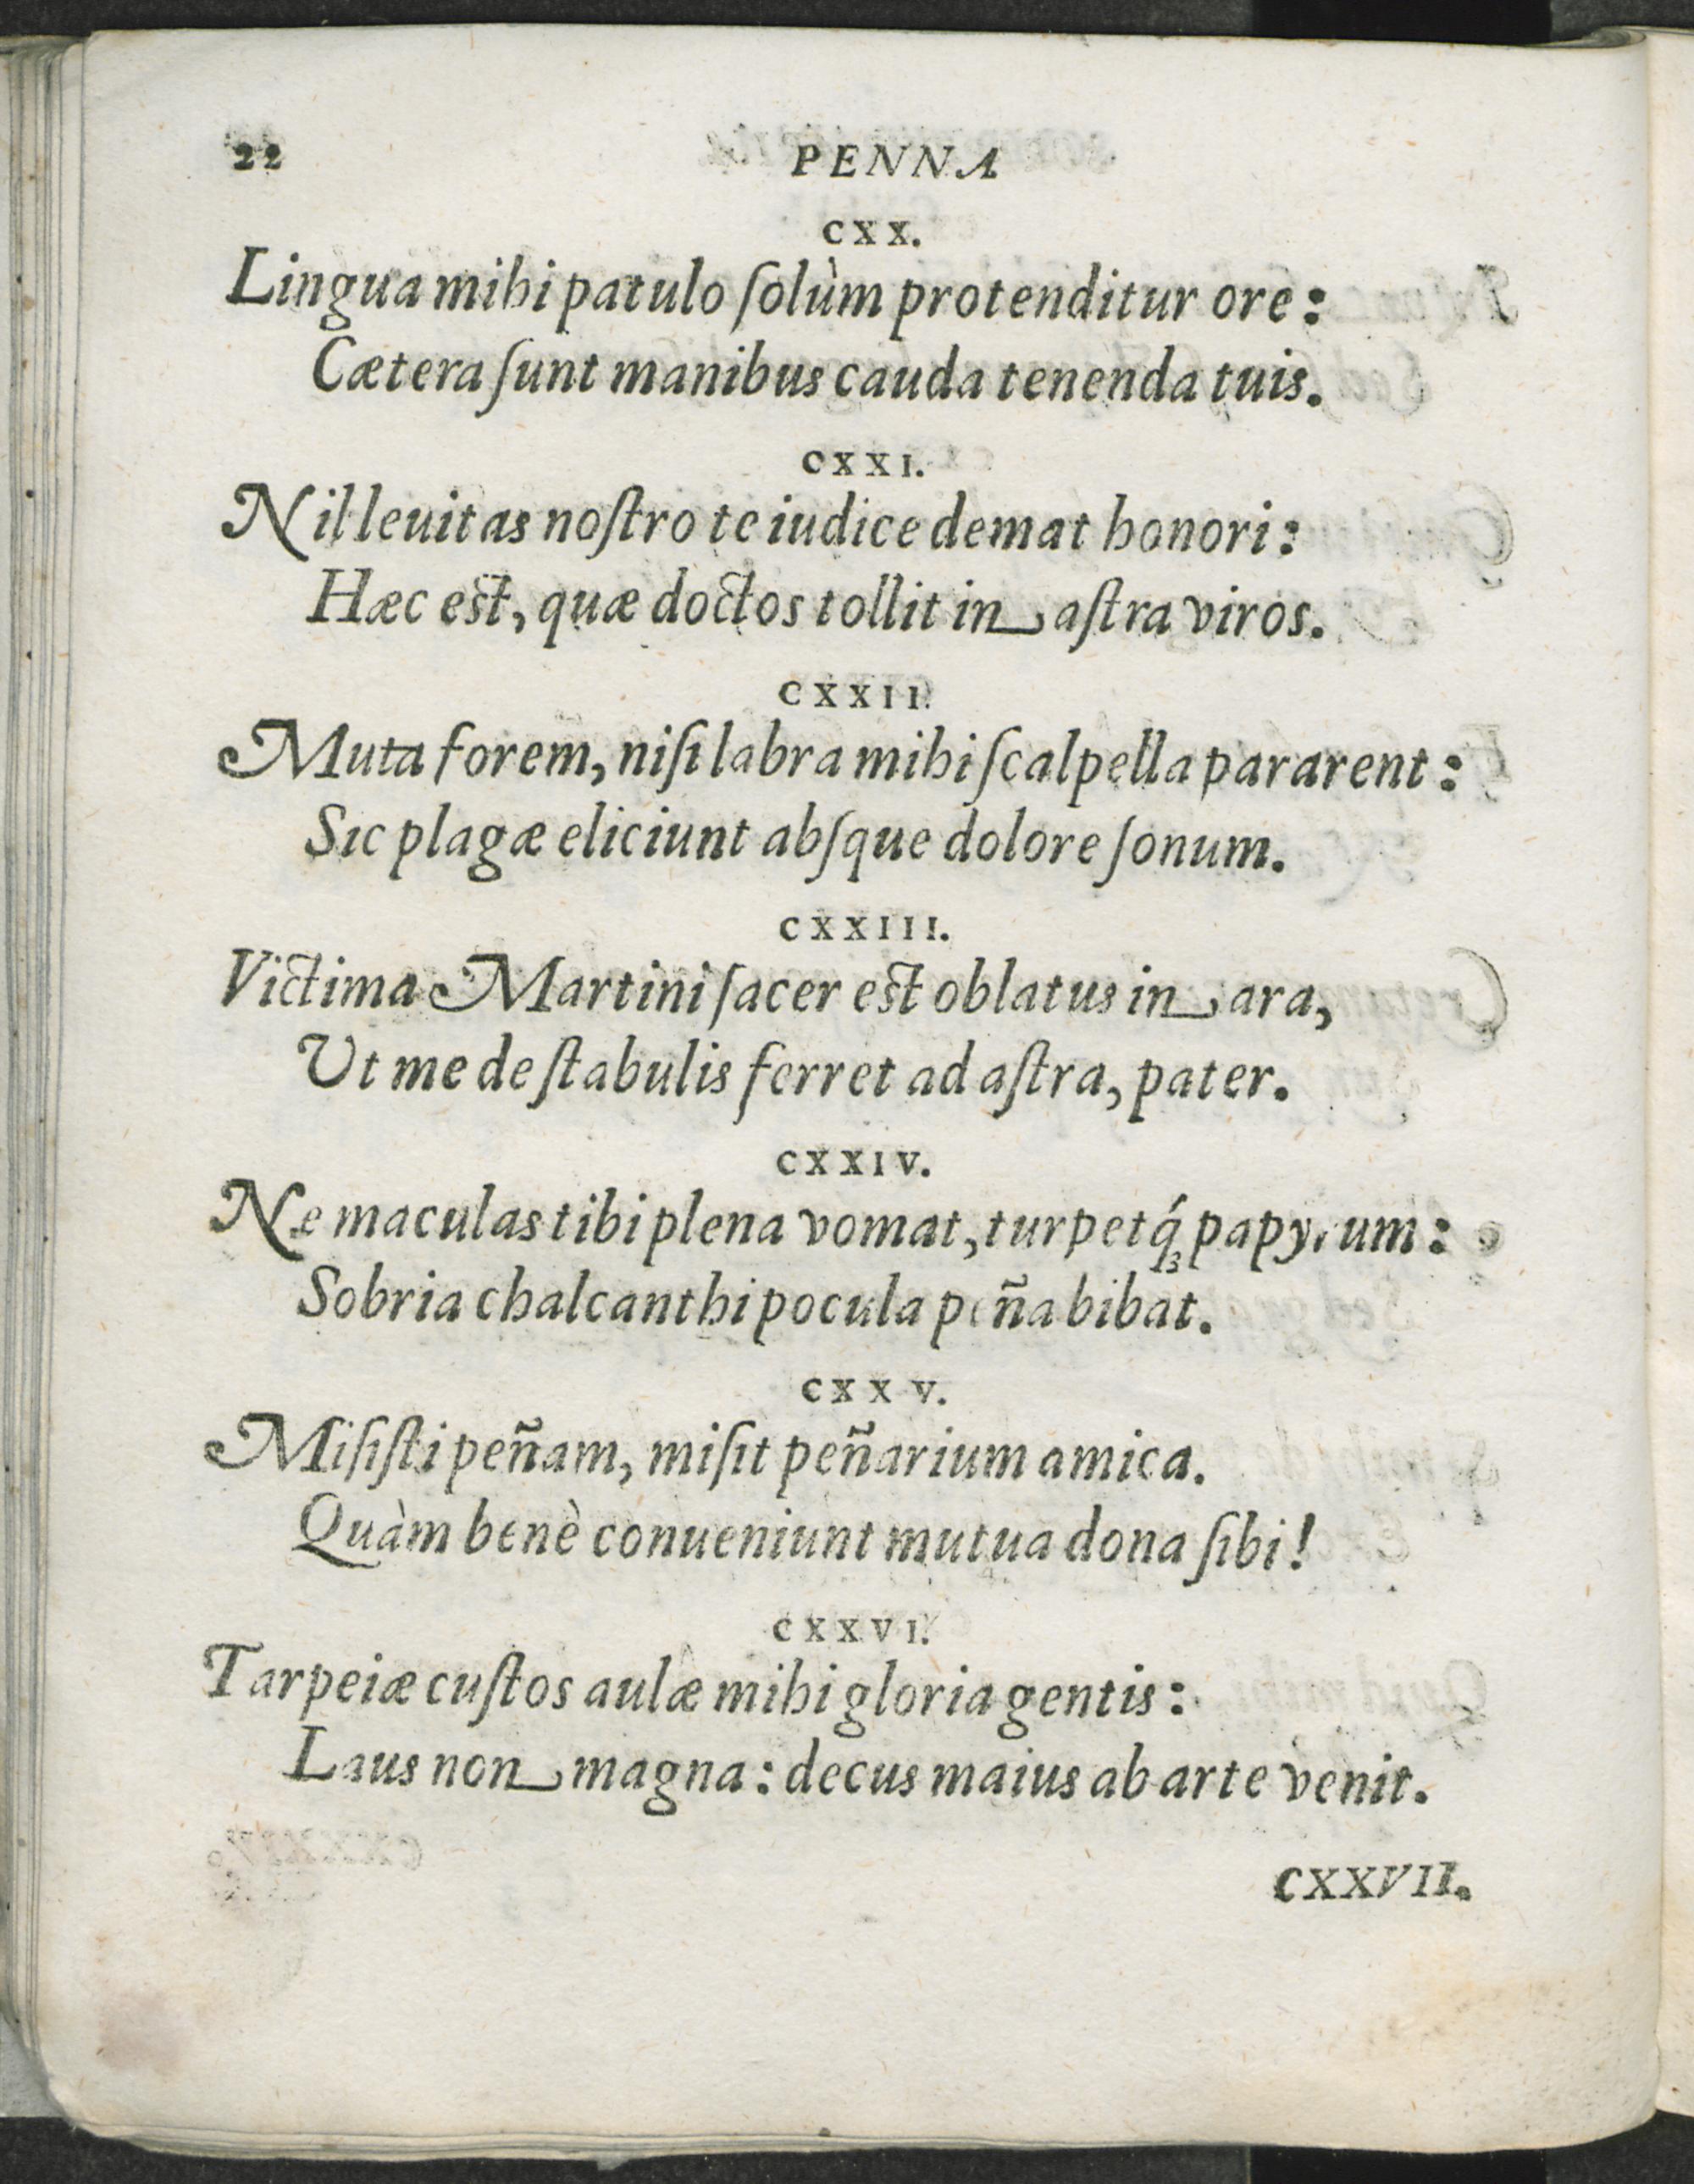 22
PENNA
CXX.
Lingua mihi patulo ſolùm protenditur ore:
Cætera ſunt manibus cauda tenenda tuis.
CXXI.
Nil leuitas noſtro te iudice demat honori:
Hæc est, quæ doctos tollit in aſtra viros.
CXXII.
Muta forem, niſi labra mihi ſcalpella pararent:
Sic plagæ eliciunt abſque dolore ſonum.
CXXIII.
Victima Martini ſacer est oblatus in ara,
Vt me de ſtabulis ferret ad aſtra, pater.
CXXIV.
Ne maculas tibi plena vomat, turpetq́ꝫ papyrum:
Sobria chalcanthi pocula peña bibat.
CXXV.
Miſiſti peñam, miſit peñarium amica.
Quàm benè conueniunt mutua dona ſibi!
CXXVI.
Tarpeiæ cuſtos aulæ mihi gloria gentis:
Laus non magna: decus maius ab arte venit.
CXXVII.